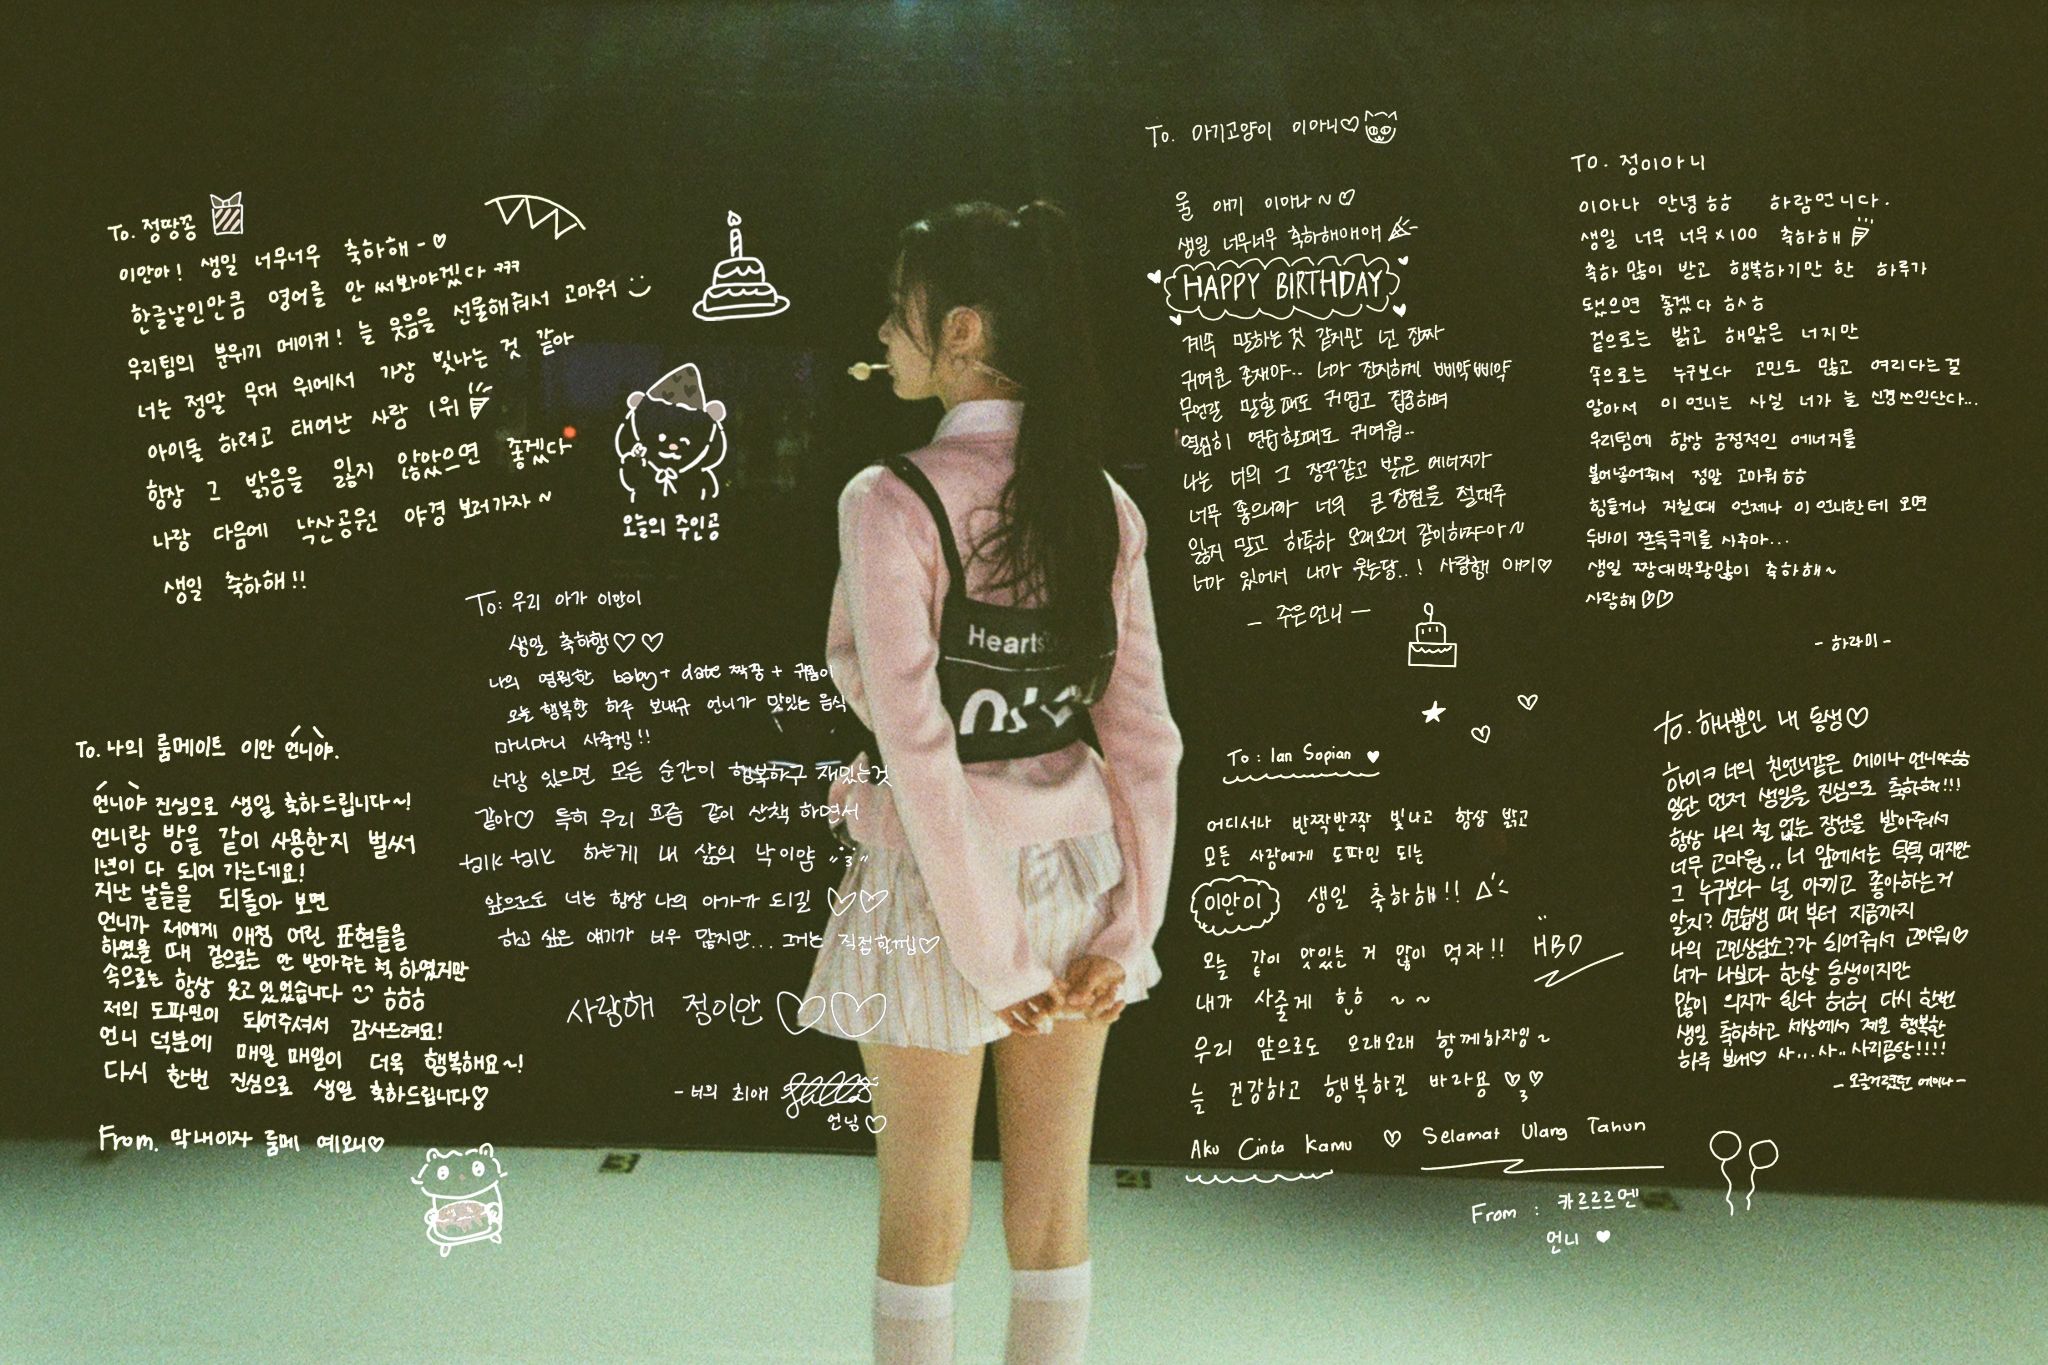 To. 정땅콩
이안아! 생일 너무너무 축하해~♡
한글날인만큼 영어를 안 써봐야겠다 ㅋㅋㅋ
우리팀의 분위기 메이커! 늘 웃음을 선물해줘서 고마워
너는 정말 무대 위에서 가장 빛나는 것 같아
아이돌 하려고 태어난 사람 1위
항상 그 밝음을 잃지 않았으면 좋겠다
나랑 다음에 낙산공원 야경 보러가자~
생일 축하해!!
오늘의 주인공
To. 나의 룸메이트 이안 언니야.
언니야 진심으로 생일 축하드립니다~!
언니랑 방을 같이 사용한지 벌써
1년이 다 되어 가는데요!
지난 날들을 되돌아 보면
언니가 저에게 애정 어린 표현들을
하였을 때 겉으로는 안 받아주는 척 하였지만
속으로는 항상 웃고 있었습니다 ㅎㅎㅎ
저의 도파민이 되어주셔서 감사드려요!
언니 덕분에 매일 매일이 더욱 행복해요~!
다시 한번 진심으로 생일 축하드립니다♡
From. 막내이자 룸메 예오니♡
To: 우리 아가 이안이
생일 축하행♡♡
나의 영원한 baby + date 짝꿍 + 귀욤이
오늘 행복한 하루 보내규 언니가 맛있는 음식
마니마니 사줄겡!!
너랑 있으면 모든 순간이 행복하구 재밌는것
같아♡ 특히 우리 요즘 같이 산책 하면서
talk talk 하는게 내 삶의 낙이얌
앞으로도 너는 항상 나의 아가가 되길 ♡♡
하고 싶은 얘기가 너무 많지만... 그거는 직접할께♡
사랑해 정이안 ♡♡
- 너의 최애
언닝♡
To. 아기고양이 이아니♡
울 애기 이아나~♡
생일 너무너무 축하해애애
HAPPY BIRTHDAY
계속 말하는것 같지만 넌 진짜
귀여운 존재야.. 너가 진지하게 삐약삐약
무언갈 말할때도 귀엽고 집중하며
열심히 연습할때도 귀여웜..
나는 너의 그 장꾸같고 밝은 에너지가
너무 좋으니까 너의 큰 장점을 절대루
잃지 말고 하투하 오래오래 같이하자아~
너가 있어서 내가 웃는당..! 사랑행 애기♡
- 주은언니 -
To. 정이아니
이아나 안녕ㅎㅎ 하람언니다.
생일 너무 너무×100 축하해
축하 많이 받고 행복하기만 한 하루가
됐으면 좋겠다 ㅎㅅㅎ
겉으로는 밝고 해맑은 너지만
속으로는 누구보다 고민도 많고 여리다는걸
알아서 이 언니는 사실 너가 늘 신경쓰인단다...
우리팀에 항상 긍정적인 에너지를
불어넣어줘서 정말 고마워ㅎㅎ
힘들거나 지칠때 언제나 이 언니한테 오면
두바이 쫀득쿠키를 사주마...
생일 짱대박왕많이 축하해~
사랑해♡♡
- 하라미 -
To : Ian Sopian ♥
어디서나 반짝반짝 빛나고 항상 밝고
모든 사람에게 도파민 되는
이안이 생일 축하해!!
오늘 같이 맛있는 거 많이 먹자!! HBD
내가 사줄게 ~~
우리 앞으로도 오래오래 함께하자잉~
늘 건강하고 행복하길 바라용♡♡
Aku Cinta Kamu ♡ Selamat Ulang Tahun
From : 카르르르멘
언니 ♥
To. 하나뿐인 내 동생♡
하이ㅋ 너의 친언니같은 에이나 언니야
일단 먼저 생일을 진심으로 축하해!!!
항상 나의 철 없는 장난을 받아줘서
너무 고마웡.. 너 앞에서는 틱틱 대지만
그 누구보다 널 아끼고 좋아하는거
알지? 연습생 때 부터 지금까지
나의 고민상담소?가 되어줘서 고마워♡
너가 나보다 한살 동생이지만
많이 의지가 된다 허허 다시 한번
생일 축하하고 세상에서 제일 행복한
하루 보내♡ 사...사..사리곰탕!!!!
- 오글거렸던 에이나 -
Hearts